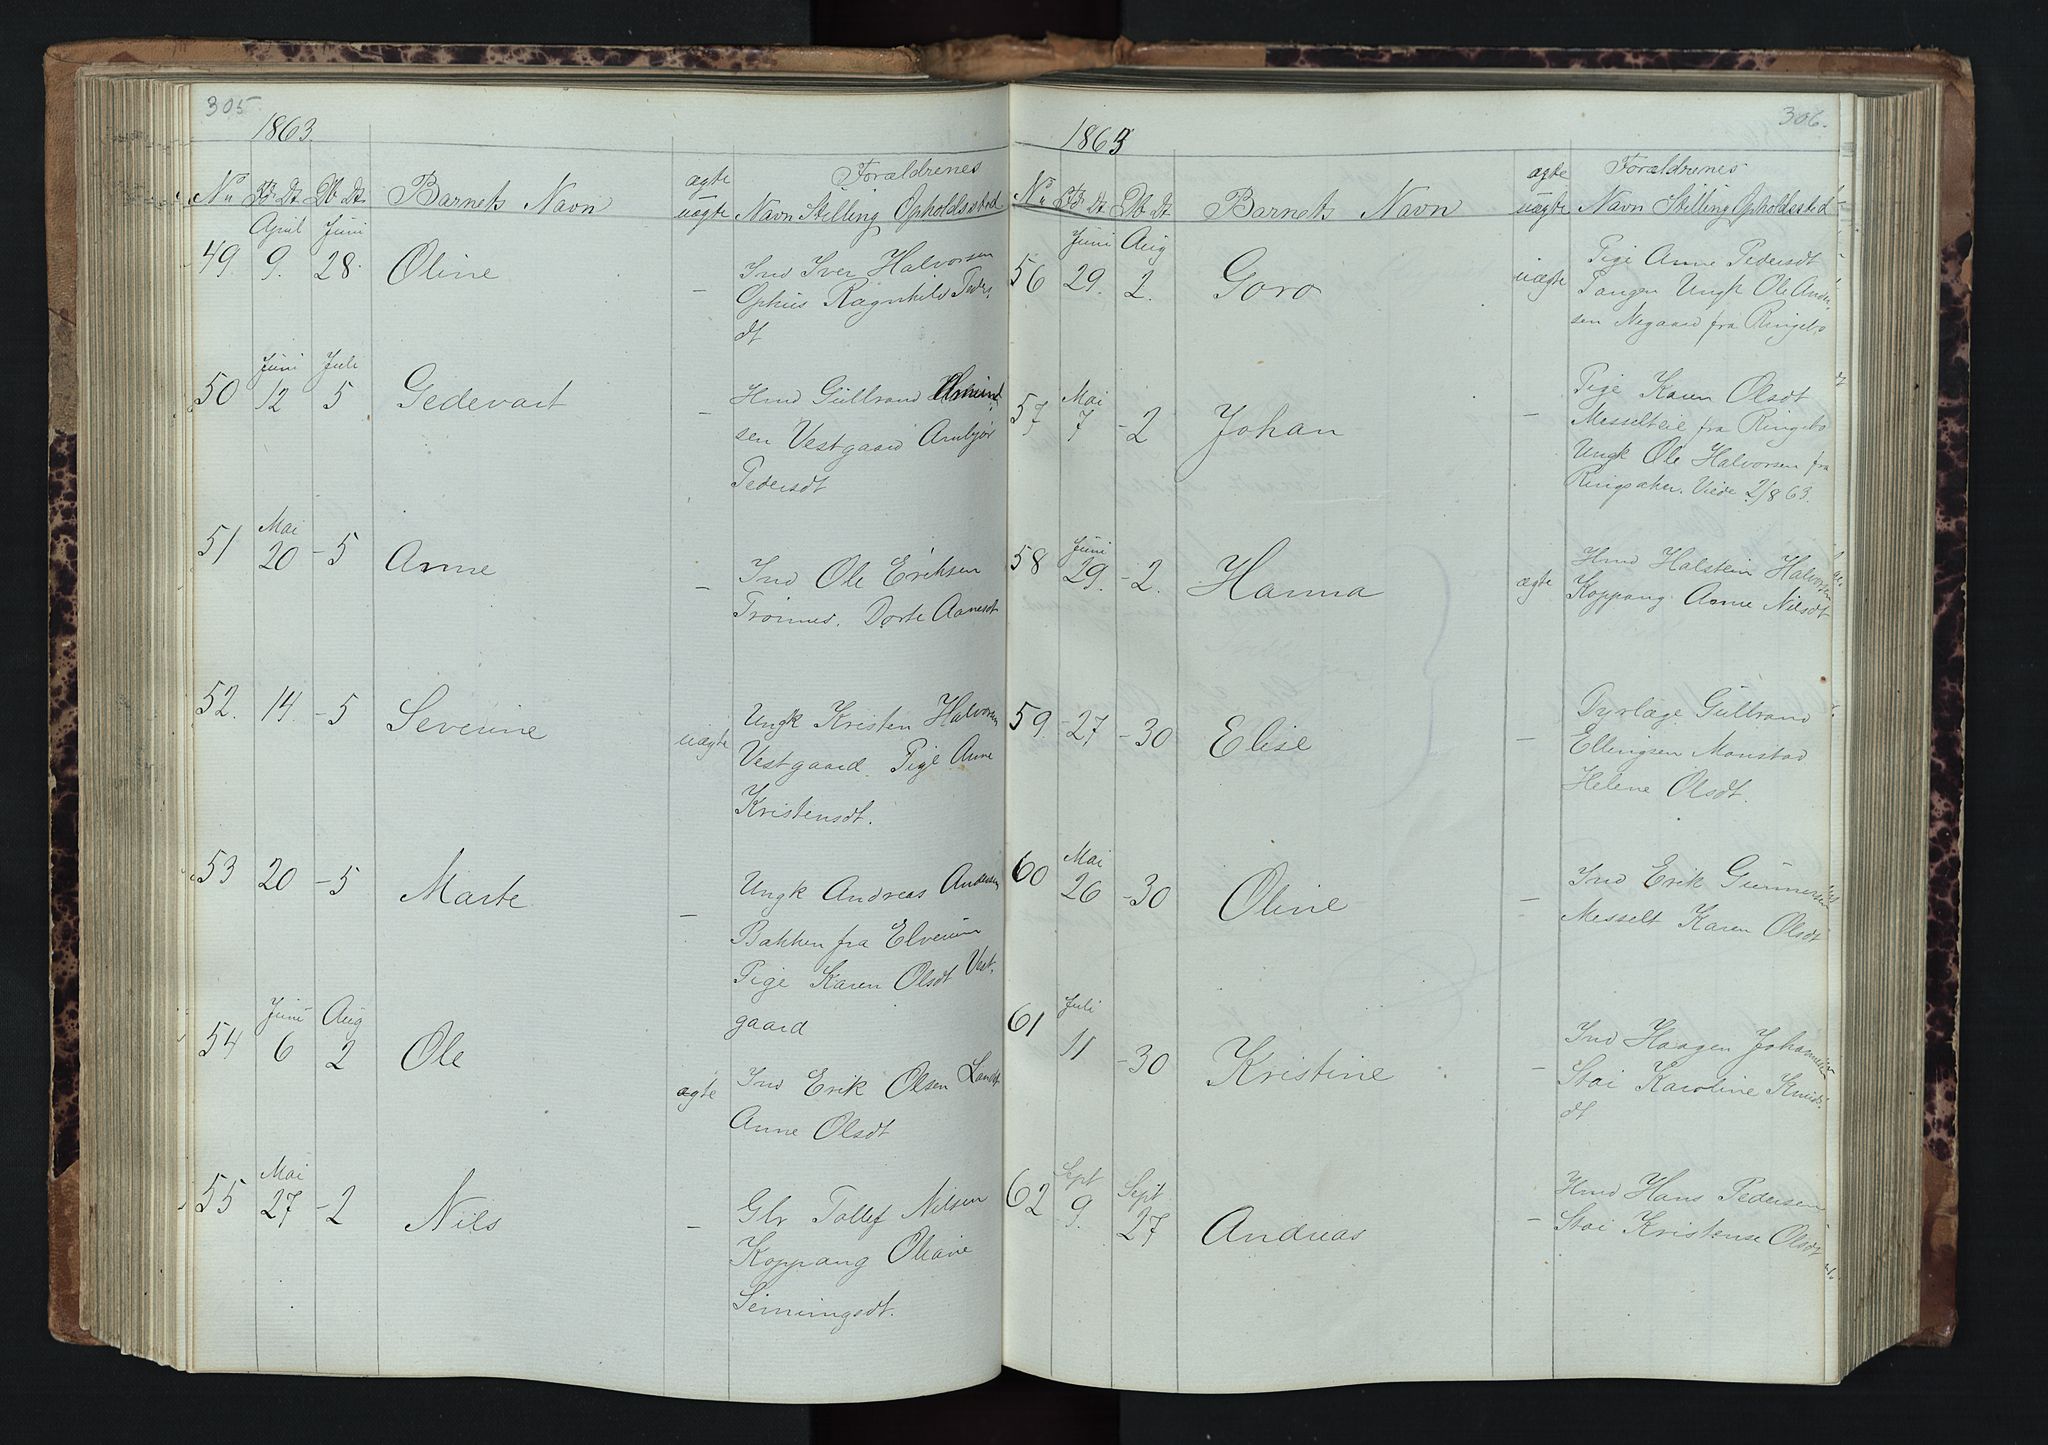 305
1863.
No Fd Dt. Db Dt. Barnets Navn ægte uægte Forældrenes Navn Stilling Opholdssted
April Juni
49. 9. 28. Oline - Ind Iver Halvorsen
Ophus Ragnhild Peders
dt
Juni Juli
50 12 5 Gedevart - Hmd Gulbrand
sen Vestgaard Ambjør
Pedersdt
Mai
51 20 - 5 Anne - Ind Ole Eriksen
Trønnes. Dorte Aanesdt
52. 14. - 5 Severine uægte Ungk Kristen Halvorsen
Vestgaard. Pige Anne
Kristensdt.
53 20 - 5 Marte - Ungk Andreas Andersen
Bakken fra Elverum
Pige Karen Olsdt Vest-
gaard
Juni Aug
54 6 2 Ole ægte Ind Erik Olsen
Anne Olsdt
Mai
55 27 - 2 Nils - Glr Tollef Nilsen
Koppang Oliane
Semmingsdt.
306.
1863
No Fd Dt. Db Dt. Barnets Navn ægte uægte Forældrenes Navn Stilling Opholdssted
Juni Aug
56 29. 2. Goro uægte Pige Anne Pedersdt
Tangen Ungk Ole Ander-
sen Negaard fra Ringebo
Mai
57 7 - 2 Johan - Pige Karen Olsdt
Messelteie fra Ringebo
Ungk Ole Halvorsen fra
Ringsaker. Viede 2/8 63.
Juni
58 29. - 2. Hanna ægte Hmd Halstein Halvorsen
Koppang. Anne Nilsdt
59. - 27 - 30 Elise - Dyrlæge Gulbrand
Ellingsen Monstad
Helene Olsdt.
Mai
60 26 - 30 Oline - Ind Erik Gunnersen
Messelt Karen Olsdt
Juli
61 11 - 30 Kristine - Ind Haagen Johannesen
Stai Karoline Knuds
dt
Sept Sept
62 9. 27 Andreas - Hmd Hans Pedersen
Stai Kristense Olsdt